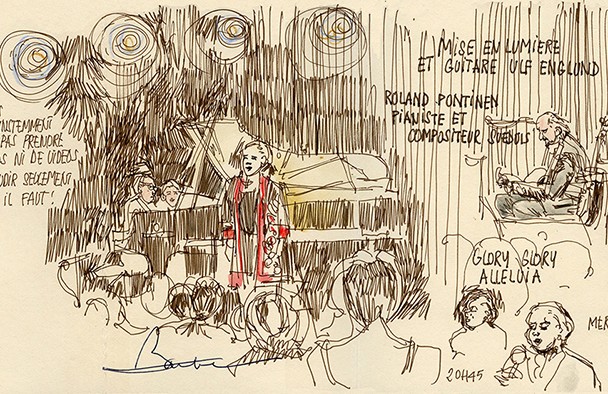 MISE EN LUMIERE
ET GUITARE ULF ENGLUND
ROLAND PONTINEN
PIANISTE ET
COMPOSITEUR SUÉDOIS
PAS PRENDRE
NI DE VIDEOS
SEULEMENT
IL FAUT !
GLORY GLORY
ALLELUIA
20H45